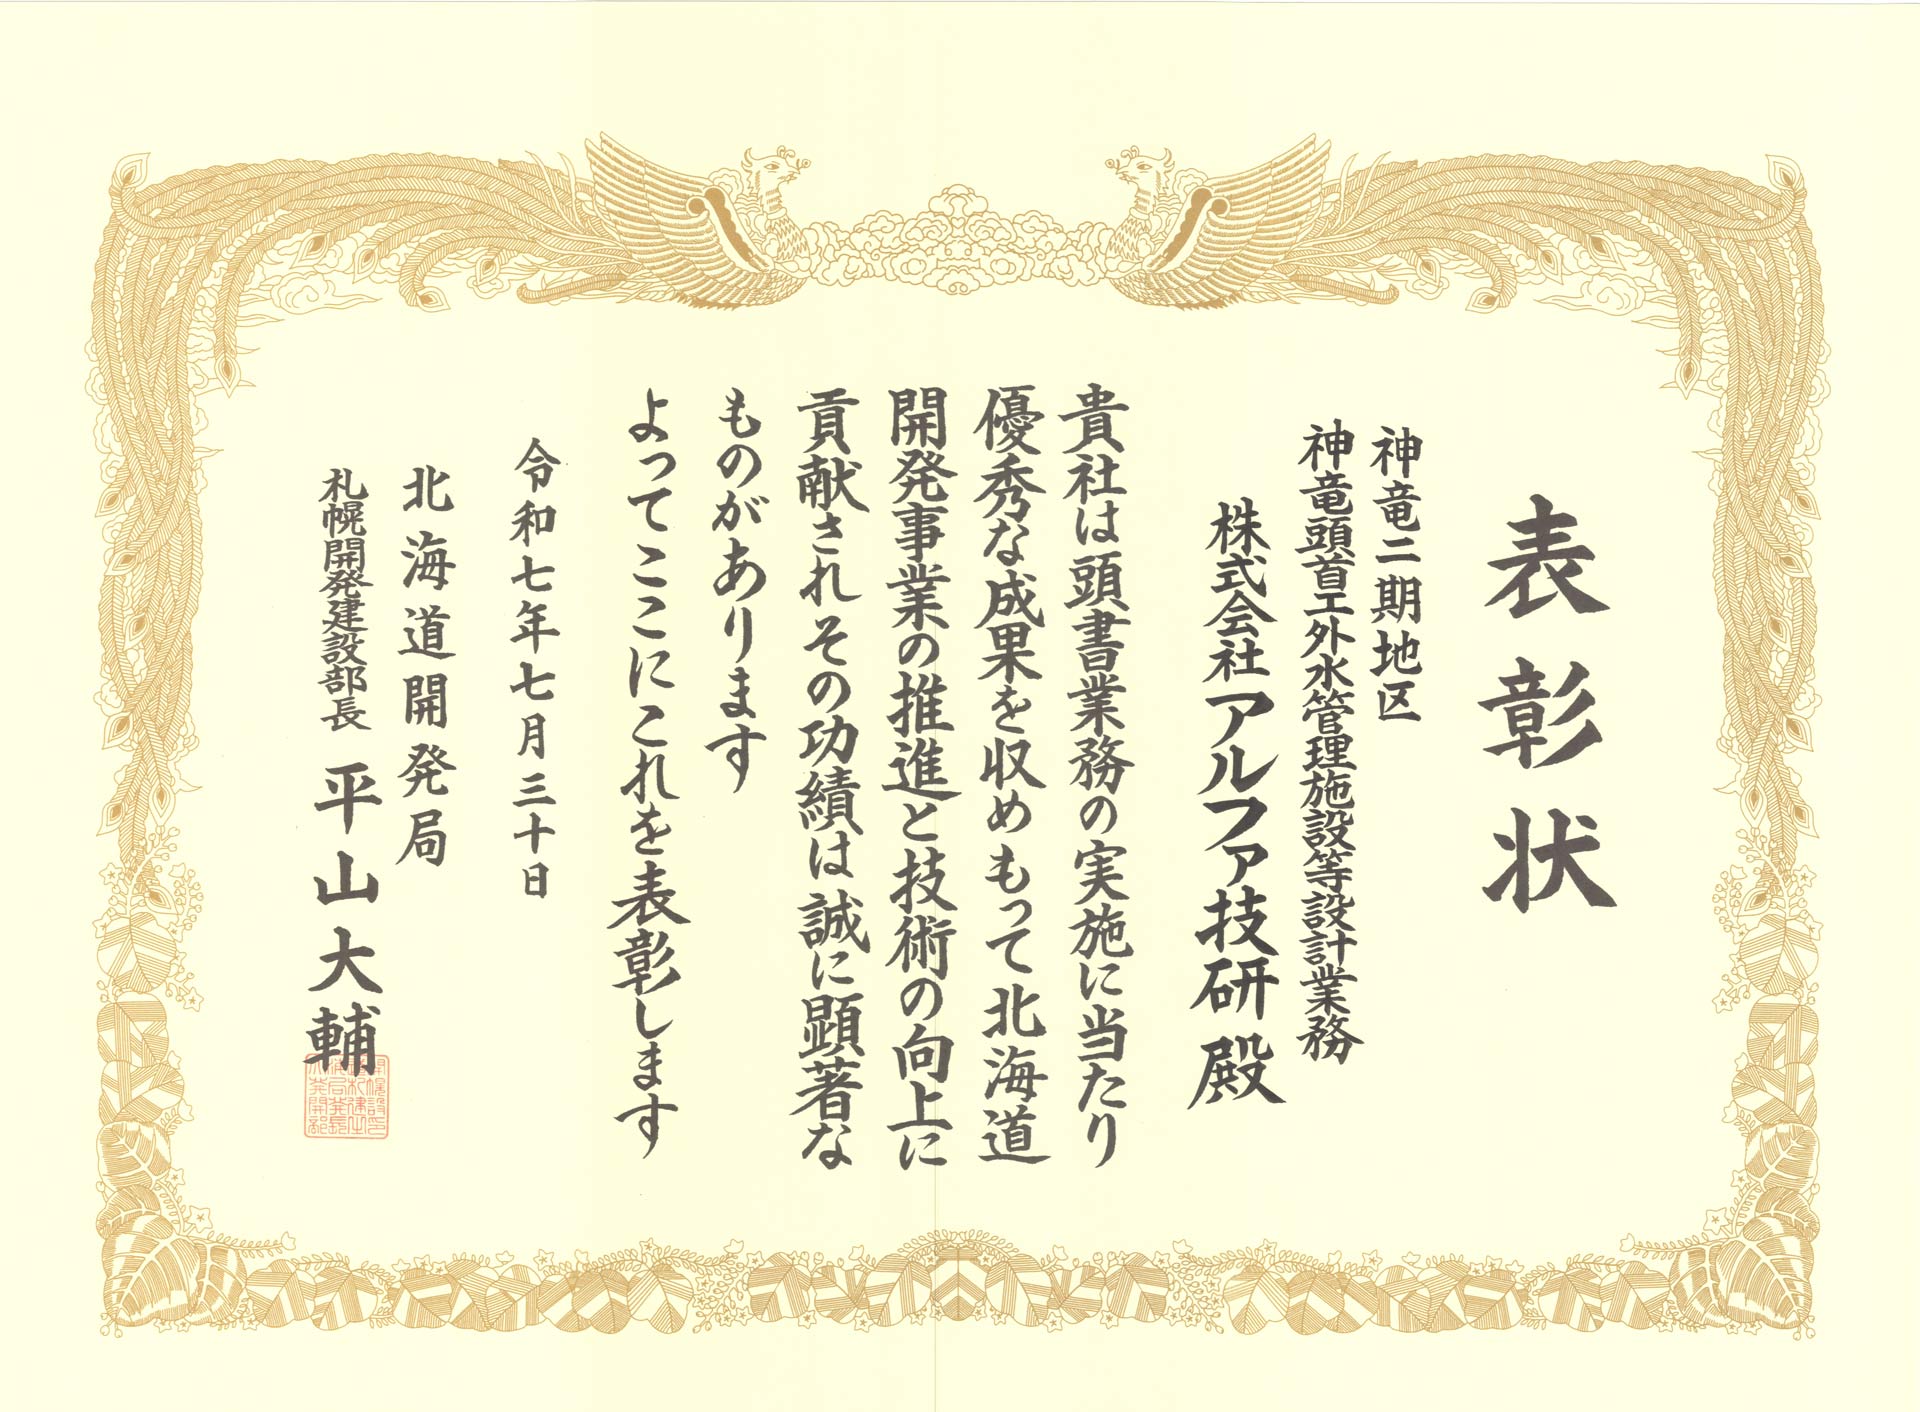 表彰状
神竜二期地区
神竜頭首工外水管理施設等設計業務
株式会社アルファ技研 殿
貴社は頭書業務の実施に当たり
優秀な成果を収めもって北海道
開発事業の推進と技術の向上に
貢献されその功績は誠に顕著な
ものがあります
よってここにこれを表彰します
令和七年七月三十日
北海道開発局
札幌開発建設部長 平山大輔